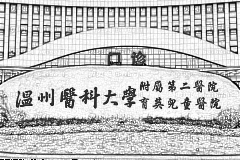 门诊
温州醫科大學
附属第二醫院
育英兒童醫院